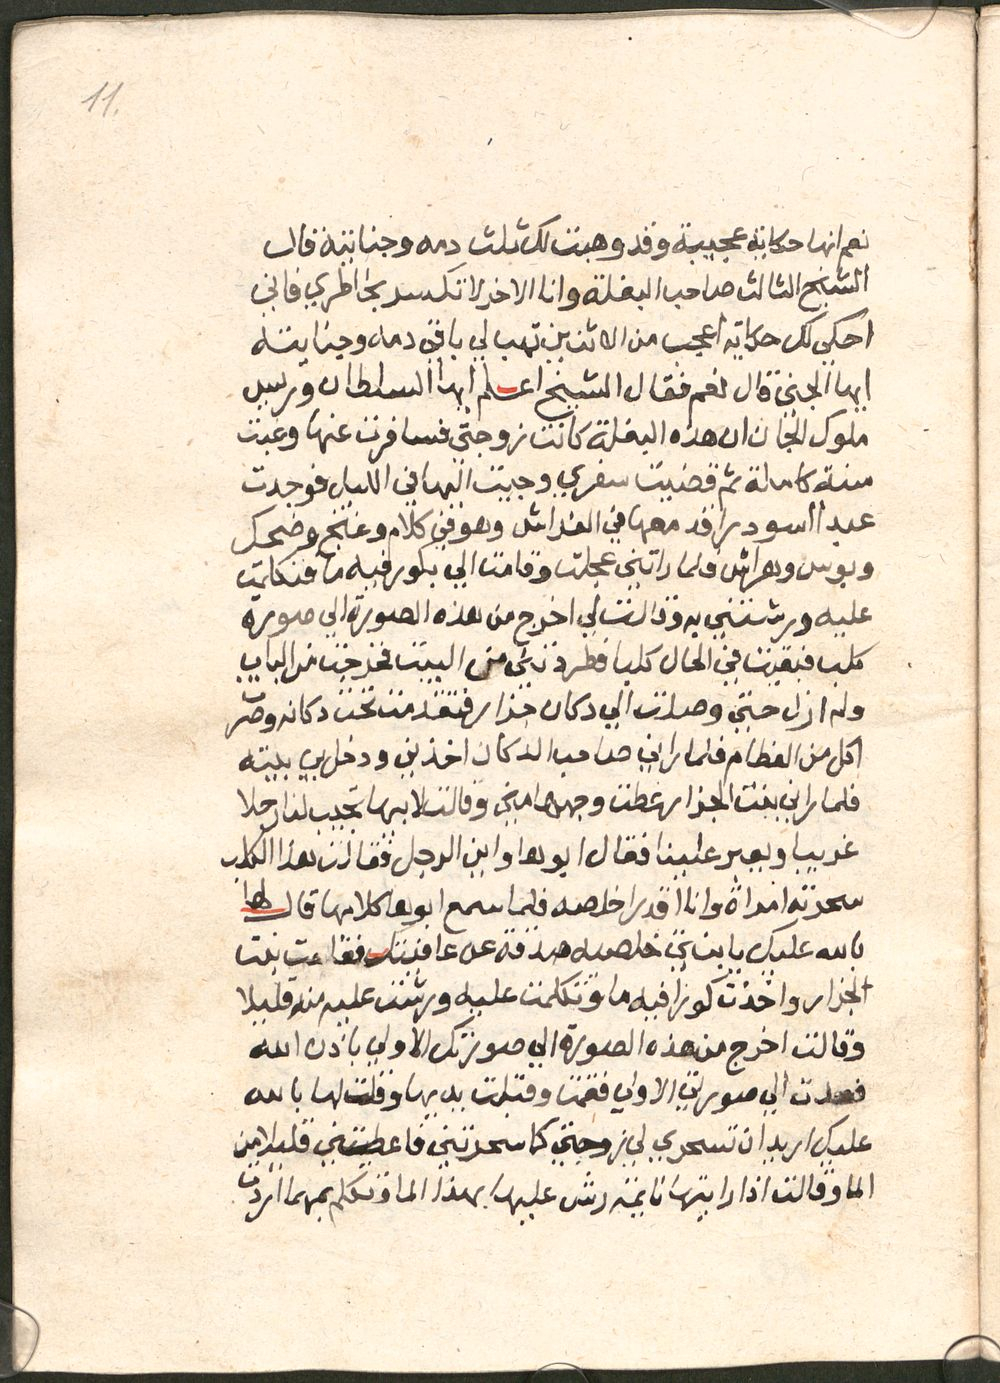 11.
نعم انها حكاية عجيبة وقد وهبت لك ثلث دمه وجنايته قال
الشيخ الثالث صاحب البغلة وانا الاخر لا تكسر بخاطري فاني
احكي لك حكاية اعجب من الاثنين تهب لي باقي دمه وجنايته
ايها الجني قال نعم فقال الشيخ اعلم ايها السلطان وريس
ملوك الجان ان هذه البغلة كانت زوجتي فسافرت عنها وغبت
سنة كاملة ثم قضيت سفري وجيت اليها في الليل فوجدت
عبد اسود راقد معها في الفراش وهو في كلام وغنج وضحك
وبوس وهراش فلما راتني عجلت وقامت الي بكوز فيه ما فتكلمت
عليه ورشتني به وقالت لي اخرج من هذه الصورة الي صورة
كلب فبقيت في الحال كلبا فطردتني من البيت فخرجت من الباب
ولم ازل حتي وصلت الي دكان جزار فتقدمت تحت دكانه وصرت
اكل من العظام فلما راني صاحب الدكان اخذني ودخل بي بيته
فلما راني بنت الجزار غطت وجهها مني وقالت لابيها تجيب لنا رجلا
غريبا ويعبر علينا فقال ابوها واين الرجل فقالت هذا الكلب
سحرته امراة وانا اقدر اخلصه فلما سمع ابوها كلامها قال لها
بالله عليك يا بنتي خلصيه صدقة عن عافيتك فقامت بنت
الجزار واخذت كوزا فيه ما وتكلمت عليه ورشت عليه منه قليلا
وقالت اخرج من هذه الصورة الي صورتك الاولي باذن الله
فعدت الي صورتي الاولي فقمت وقبلت يديها وقلت لها بالله
عليك اريد ان تسحري لي زوجتي كما سحرتني فاعطتني قليلا من
الما وقالت اذا رايتها نايمة رش عليها بهذا الما وتكلم بمهما اردت